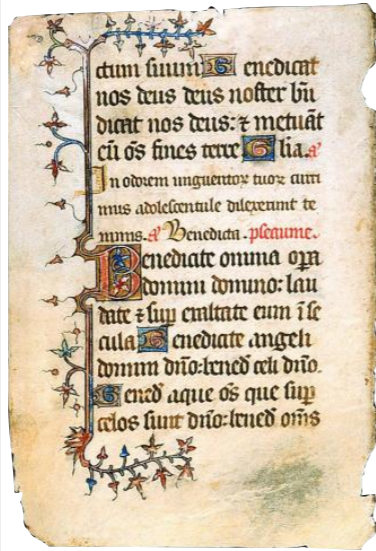 ctum suum Benedicat
nos deus deus noster bñi
dicat nos deus: ⁊ metuãt
eũ õs fines terre Glia. a̓
In odorem unguentoꝝ tuoꝝ curri
mus adolescentule dilexerunt te
nimis. a̓ Benedicta. pseaume.
Benedicate omnia oꝑa
domini domino: lau
date ⁊ suꝑ exaltate eum ĩ se
cula Benedicite angeli
domini dño: bened̃ celi dño.
Bened̃ aque õs que suꝑ
celos sunt dño: bened̃ om̃s